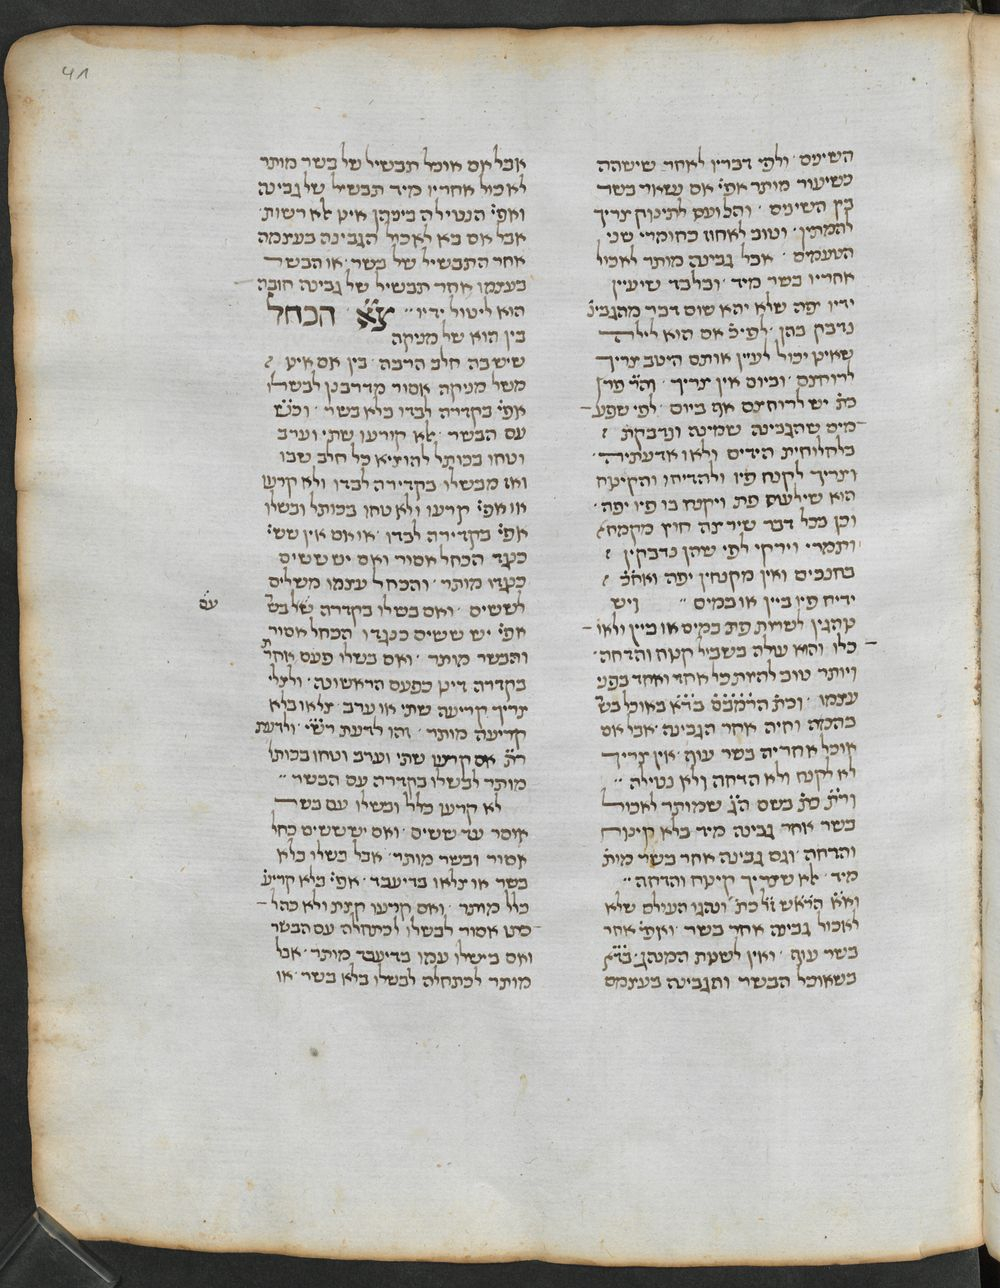 41
השינים ולפי דבריו לאחר ששהה
כשיעור מותר אפי׳ אם נשאר בשר
בין השינים והלועס לתינוק צריך
להמתין וטוב לאחוז כחומרי שני
הטעמים אבל גבינה מותר לאכול
אחריו בשר מיד ובלבד שיעיין
ידיו יפה שלא יהא שום דבר מהגבינ׳
נדבק בהן לפיכ׳ אם הוא לילה
שאינו יכול לעיין אותם היטב צריך
לרוחצם וביום אין צריך והר׳ פרץ
כת׳ יש לרוחצם אף ביום לפי שפע־
־מים שהגבינה שמינה ונדבקת
בלחלוחית הידים ולאו אדעתיה
וצריך לקנח פיו ולהדיחו והקינוח
הוא שילעוס פת ויקנח בו פיו יפה
וכן בכל דבר שירצה חוץ מקמח
ותמרי וירקי לפי שהן נדבקין
בחנכים ואין מקנחין יפה ואח״כ
ידיח פיו ביין או במים ״ ויש
נוהגין לשרות פת במים או ביין ולאו־
־כלו והוא עולה בשביל קנוח והדחה
ויותר טוב להיות כל אחד ואחד בפני
עצמו וכת׳ הרמב״ם בד״א באוכל בש׳
בהמה וחיה אחר הגבינה אבל אם
אוכל אחריה בשר עוף אין צריך
לא לקנוח ולא הדחה ולא נטילה ״
ור״ת כת׳ בשם ה״ג שמותר לאכול
בשר אחר גבינה מיד בלא קינוח
והדחה וגם גבינה אחר בשר מות׳
מיד אלא שצריך קינוח והדחה ״
וא״א הרא״ש ז״ל כת׳ ונהגו העולם שלא
לאכול גבינה אחר בשר ואפי׳ אחר
בשר עוף ואין לשנות המנהג בד״א
כשאוכל הבשר והגבינה בעצמם
אבל אם אוכל תבשיל של בשר מותר
לאכול אחריו מיד תבשיל של גבינה
ואפי׳ הנטילה ביניהן אינו אלא רשות
אבל אם בא לאכול הגבינה בעצמה
אחר התבשיל של בשר או הבשר
בעצמו אחר תבשיל של גבינה חובה
הוא ליטול ידיו ״ צ״א הכחל
בין הוא של מניקה
שיש בה חלב הרבה בין אם אינו
משל מניקה אסור מדרבנן לבשלו
אפי׳ בקדרה לבדו בלא בשר וכ״ש
עם הבשר אלא קורעו שתי וערב
וטחו בכותל להוציא כל חלב שבו
ואז מבשלו בקדירה לבדו ולא קרעו
או אפי׳ קרעו ולא טחו בכותל ובשלו
אפי׳ בקדירה לבדו או אם אין ששי׳
כנגד הכחל אסור ואם יש ששים
כנגדו מותר והכחל עצמו משלים
לששים ואם בשלו בקדרה של בש׳
עם
אפי׳ יש ששים כנגדו הכחל אסור
והבשר מותר ואם בשלו פעם אחרת
בקדרה דינו כפעם הראשונה ולצלי
צריך קריעה שתי או ערב צלאו בלא
קריעה מותר זהו לדעת רש״י ולדעת
ר״ת אם קרעו שתי וערב וטחו בכותל
מותר לבשלו בקדרה עם הבשר ״
לא קרעו כלל ובשלו עם בשר
אוסר עד ששים ואם יש ששים כחל
אסור ובשר מותר אבל בשלו בלא
בשר או צלאו בדיעבד אפי׳ בלא קריע׳
כלל מותר ואם קריעו קצת ולא כהל־
־כתו אסור לבשלו לכתחלה עם הבשר
ואם בישלו עמו בדיעבד מותר אבל
מותר לכתחלה לבשלו בלא בשר או